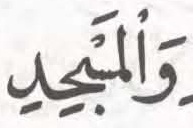 وَاْلمَسْجِدِ